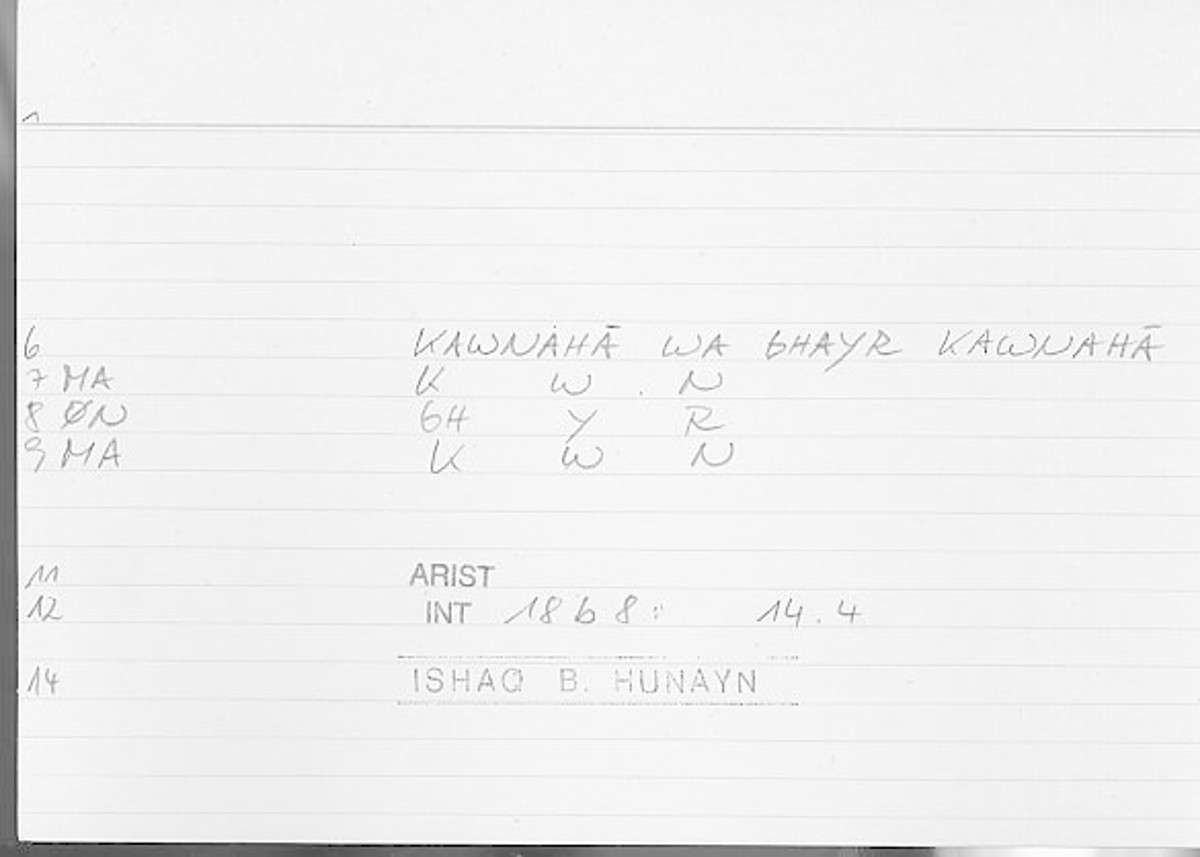 1
6 KAWNAHĀ WA GHAYR KAWNAHĀ
7 MA K W . N
8 ØN GH Y R
9 MA K W N
11 ARIST
12 INT 18 b 8 : 14.4
14 ISHAQ B. HUNAYN